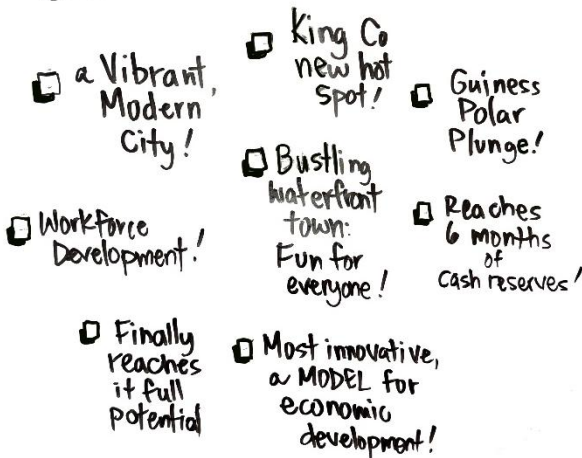 a Vibrant,
Modern
City!
King Co
new hot
spot!
Guiness
Polar
Plunge!
Bustling
waterfront
town:
Fun for
everyone!
Workforce
Development!
Reaches
6 months
of
cash reserves!
Finally
reaches
it full
potential
Most innovative,
a MODEL for
economic
development!